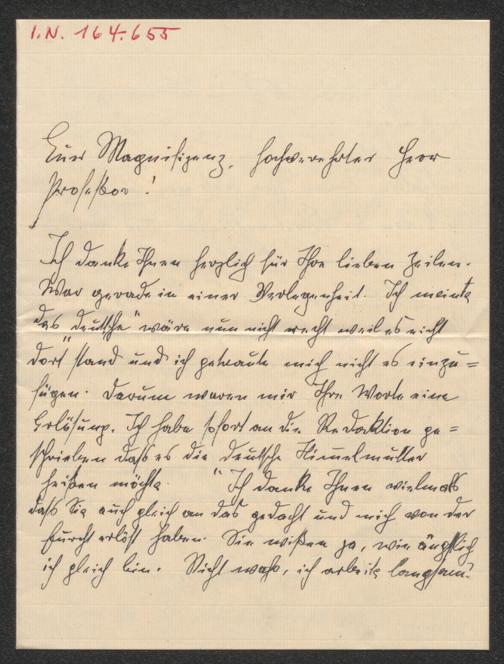 I.N. 164.655
Euer Magnifizenz, hochverehrter Herr
Professor!
Ich danke Ihnen herzlich für Ihre lieben Zeilen.
War gerade in einer Verlegenheit. Ich meinte
"das deutsche" wäre nun nicht recht weil es nicht
dort stand und ich getraute mich nicht es einzu=
fügen. Darum waren mir Ihre Worte eine
Erlösung. Ich habe sofort an die Redaktion ge=
schrieben daß es die deutsche Himmelmutter
heißen möchte. " Ich danke Ihnen vielmals
daß Sie auch gleich an das gedacht und mich von der
Furcht erlöst haben. Sie wißen ja, wie ängstlich
ich gleich bin. Nicht wahr, ich arbeite langsam?